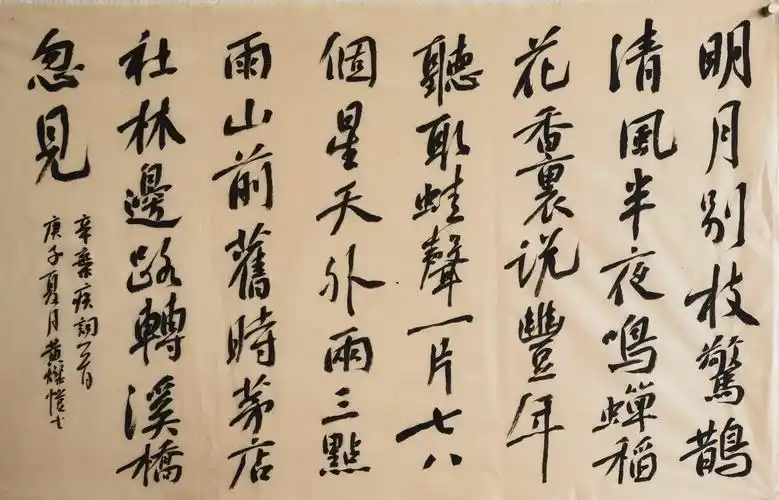 明月别枝驚鵲
清風半夜鳴蟬稻
花香裏説豐年
聽取蛙聲一片七八
個星天外兩三點
雨山前舊時茅店
社林邊路轉溪橋
忽見
辛棄疾詞一首
庚子夏月黄燦